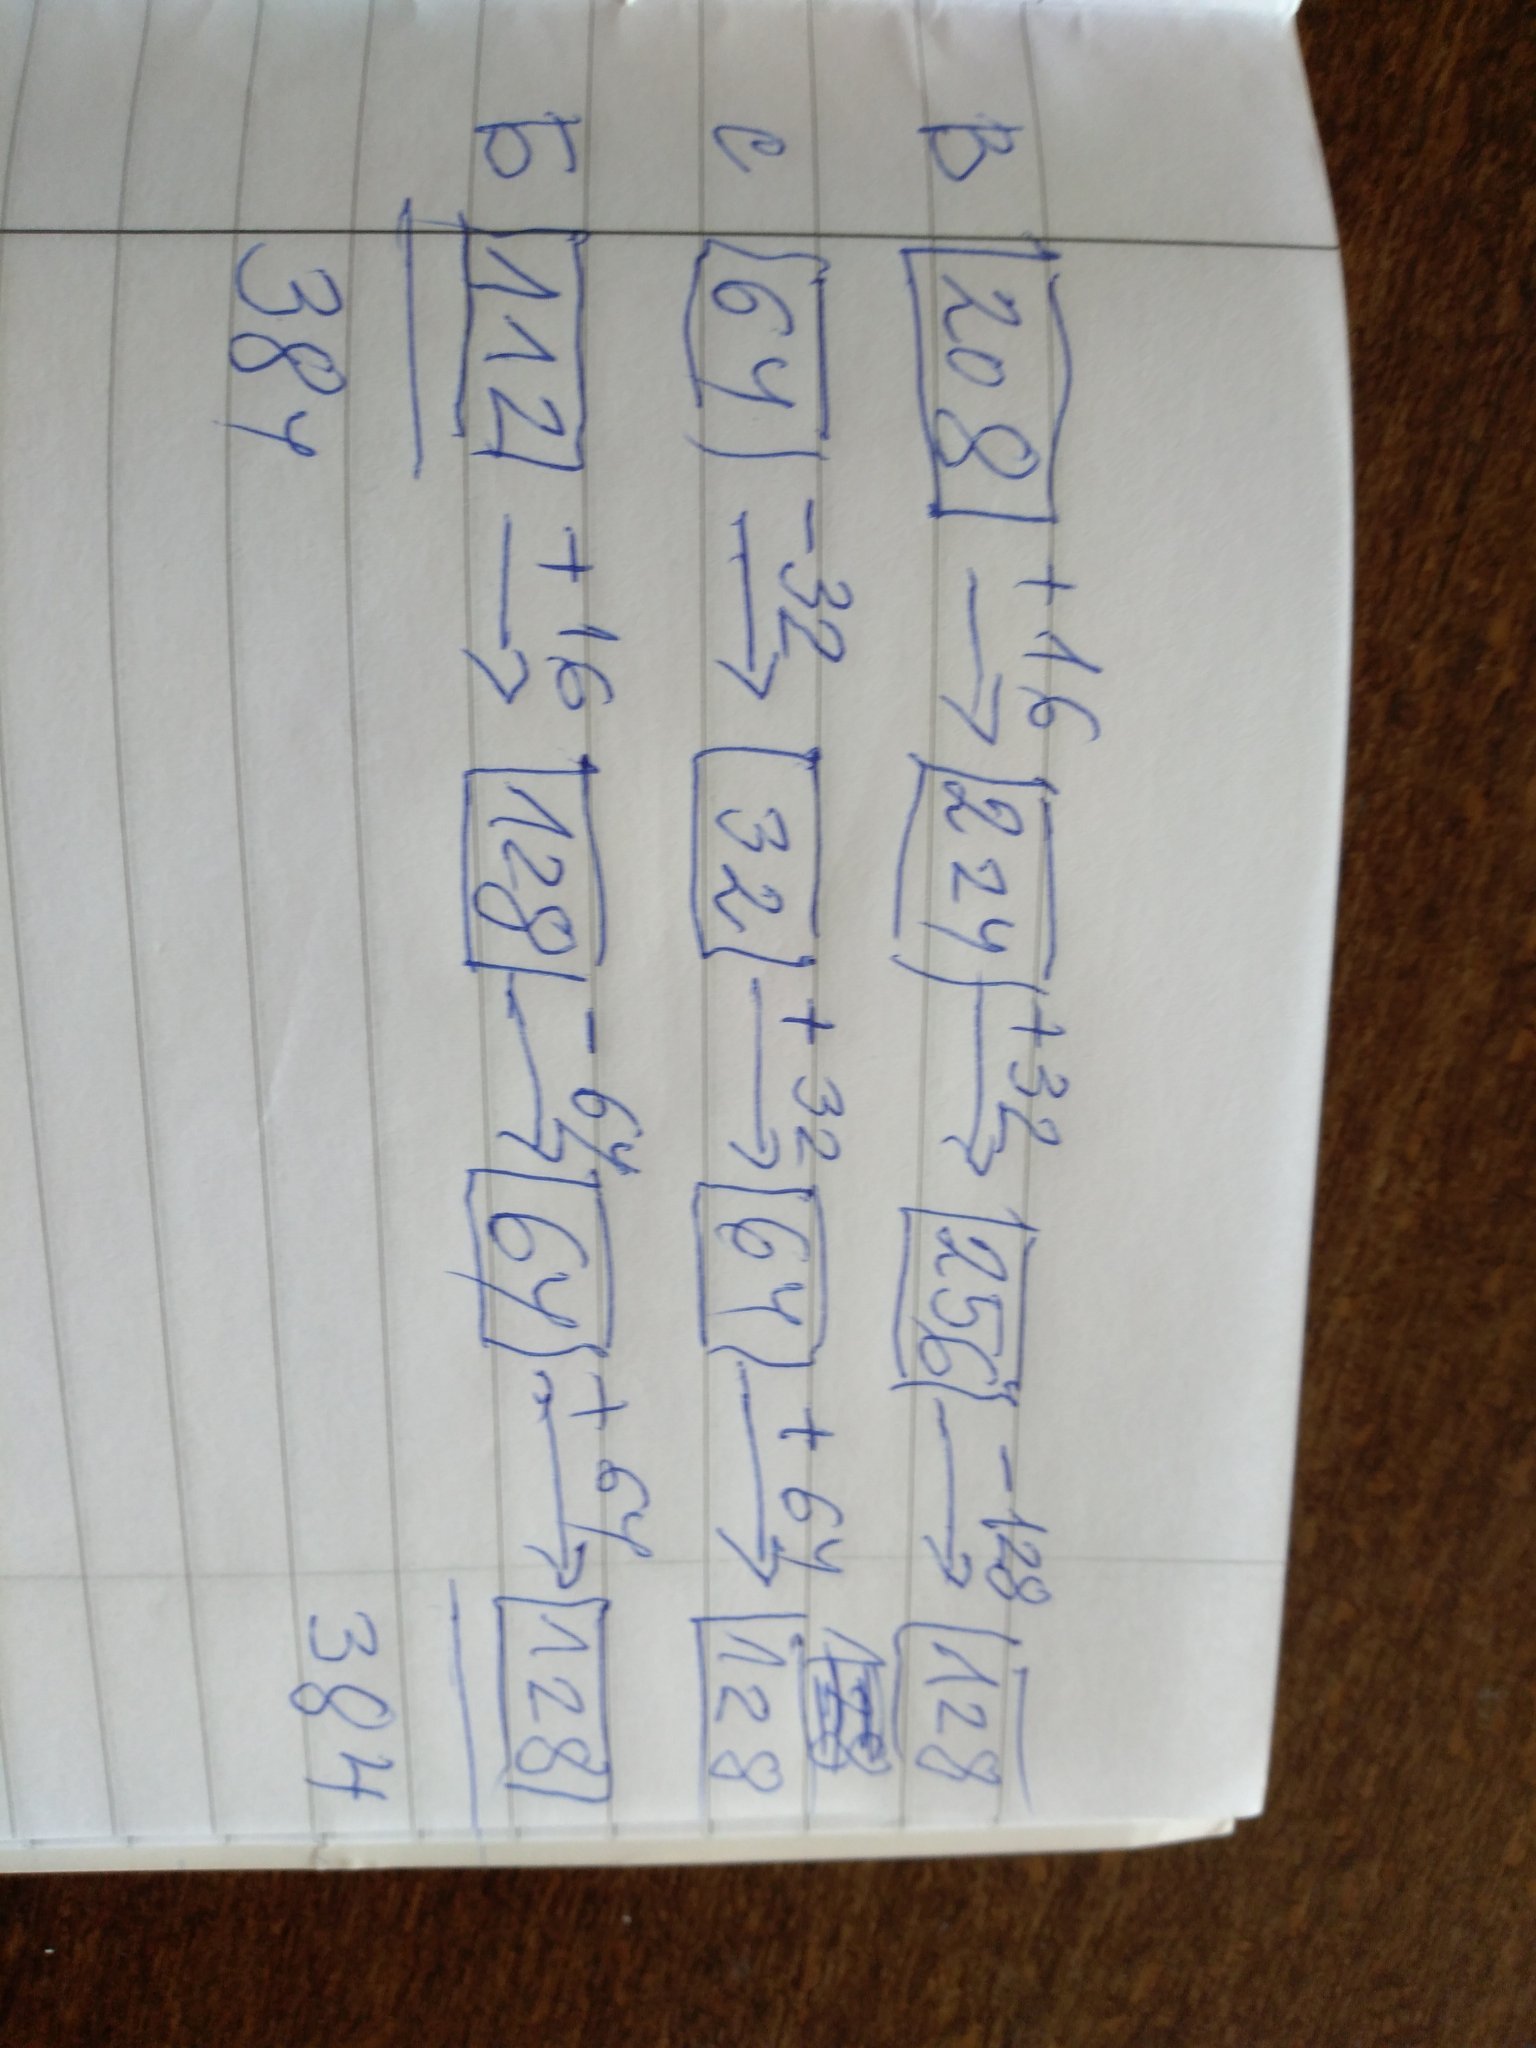 В 208 +16 → 224 +32 → 256 -128 → 128
С 64 -32 → 32 +32 → 64 +64 → 128
Б 112 +16 → 128 -64 → 64 +64 → 128
384 384